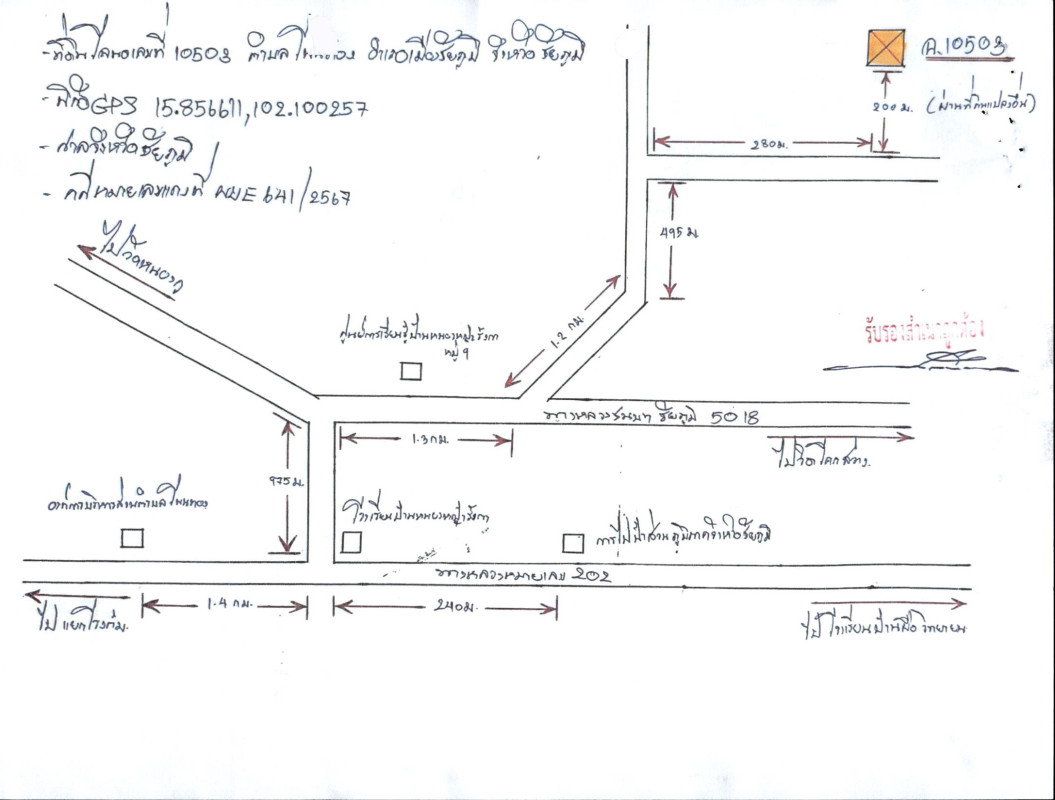 - ที่ดินโฉนดเลขที่ 10503 ตำบลโพนทอง อำเภอเมืองชัยภูมิ จังหวัดชัยภูมิ
- พิกัดGPS 15.856671,102.100257
- ศาลจังหวัดชัยภูมิ
- คดีหมายเลขแดงที่ ผบE 641/2567
ฉ.10503
200 ม. (ผ่านที่ดินแปลงอื่น)
280 ม.
495 ม.
ไปวัดหนอง
1.2 กม.
รับรองสำเนาถูกต้อง
ศูนย์การเรียนรู้บ้านหนองหญ้ารังกา
หมู่ 9
ทางหลวงชนบท ชัยภูมิ 5018
1.3 กม.
ไปวัดโคกสว่าง
975 ม.
องค์การบริหารส่วนตำบลโพนทอง
โรงเรียนบ้านหนองหญ้ารังกา
การไฟฟ้าส่วนภูมิภาคจังหวัดชัยภูมิ
ทางหลวงหมายเลข 202
ไปแยกโรงต้ม
1.4 กม.
240 ม.
ไปโรงเรียนบ้านวิทยายน